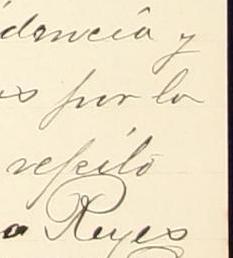 dancia y
por la
repito
Reyes